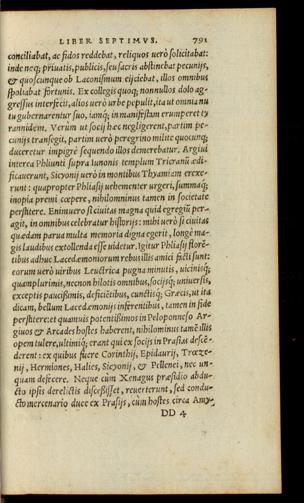 LIBER SEPTIMVS. 791
conciliabat, ac fidos reddebat, reliquos uerò solicitabat:
inde neq; priuatis, publicis, seu sacris abstinebat pecunijs,
& quoscunque ob Laconismum eijciebat, illos omnibus
spoliabat fortunis. Ex collegis quoq; nonnullos dolo ag-
gressus interfecit, alios uerò urbe pepulit, ita ut omnia nu
tu gubernarentur suo, iamq; in manifestam erumperet ty
rannidem. Verùm ut socij hæc negligerent, partim pe-
cunijs transegit, partim uerò peregrino milite quocunq;
duceretur impigrè sequendo illos demerebatur. Argiui
interea Phliunti supra Iunonis templum Tricranũ ædi-
ficauerunt, Sicyonij uerò in montibus Thyamiam erexe-
runt: quapropter Phliasij uehementer urgeri, summaq;
inopia premi cœpere, nihilominus tamen in societate
perstitere. Enimuero si ciuitas magna quid egregiũ per-
agit, in omnibus celebratur historijs: mihi uerò si ciuitas
quædam parua multa memoria digna egerit, longè ma-
gis laudibus extollenda esse uidetur. Igitur Phliasij florẽ-
tibus adhuc Lacedæmoniorum rebus illis amici facti sunt:
eorum uerò uiribus Leuctrica pugna minutis, uicinisq;
quamplurimis, necnon hilotis omnibus, socijsq; uniuersis,
exceptis paucißimis, deficiẽtibus, cunctisq; Græcis, ut ita
dicam, bellum Lacedæmonijs inferentibus, tamen in fide
perstitere: et quamuis potentißimos in Peloponneso Ar-
giuos & Arcades hostes haberent, nihilominus tamẽ illis
opem tulere, ultimiq; erant qui ex socijs in Prasias descẽ-
derent: ex quibus fuere Corinthij, Epidaurij, Trœze-
nij, Hermiones, Halies, Sicyonij, & Pellenei, nec un-
quam defecere. Neque cùm Xenagus præsidio abdu-
cto ipsis derelictis discessisset, reuerterunt, sed condu-
cto mercenario duce ex Prasijs, cùm hostes circa Amy-
DD 4